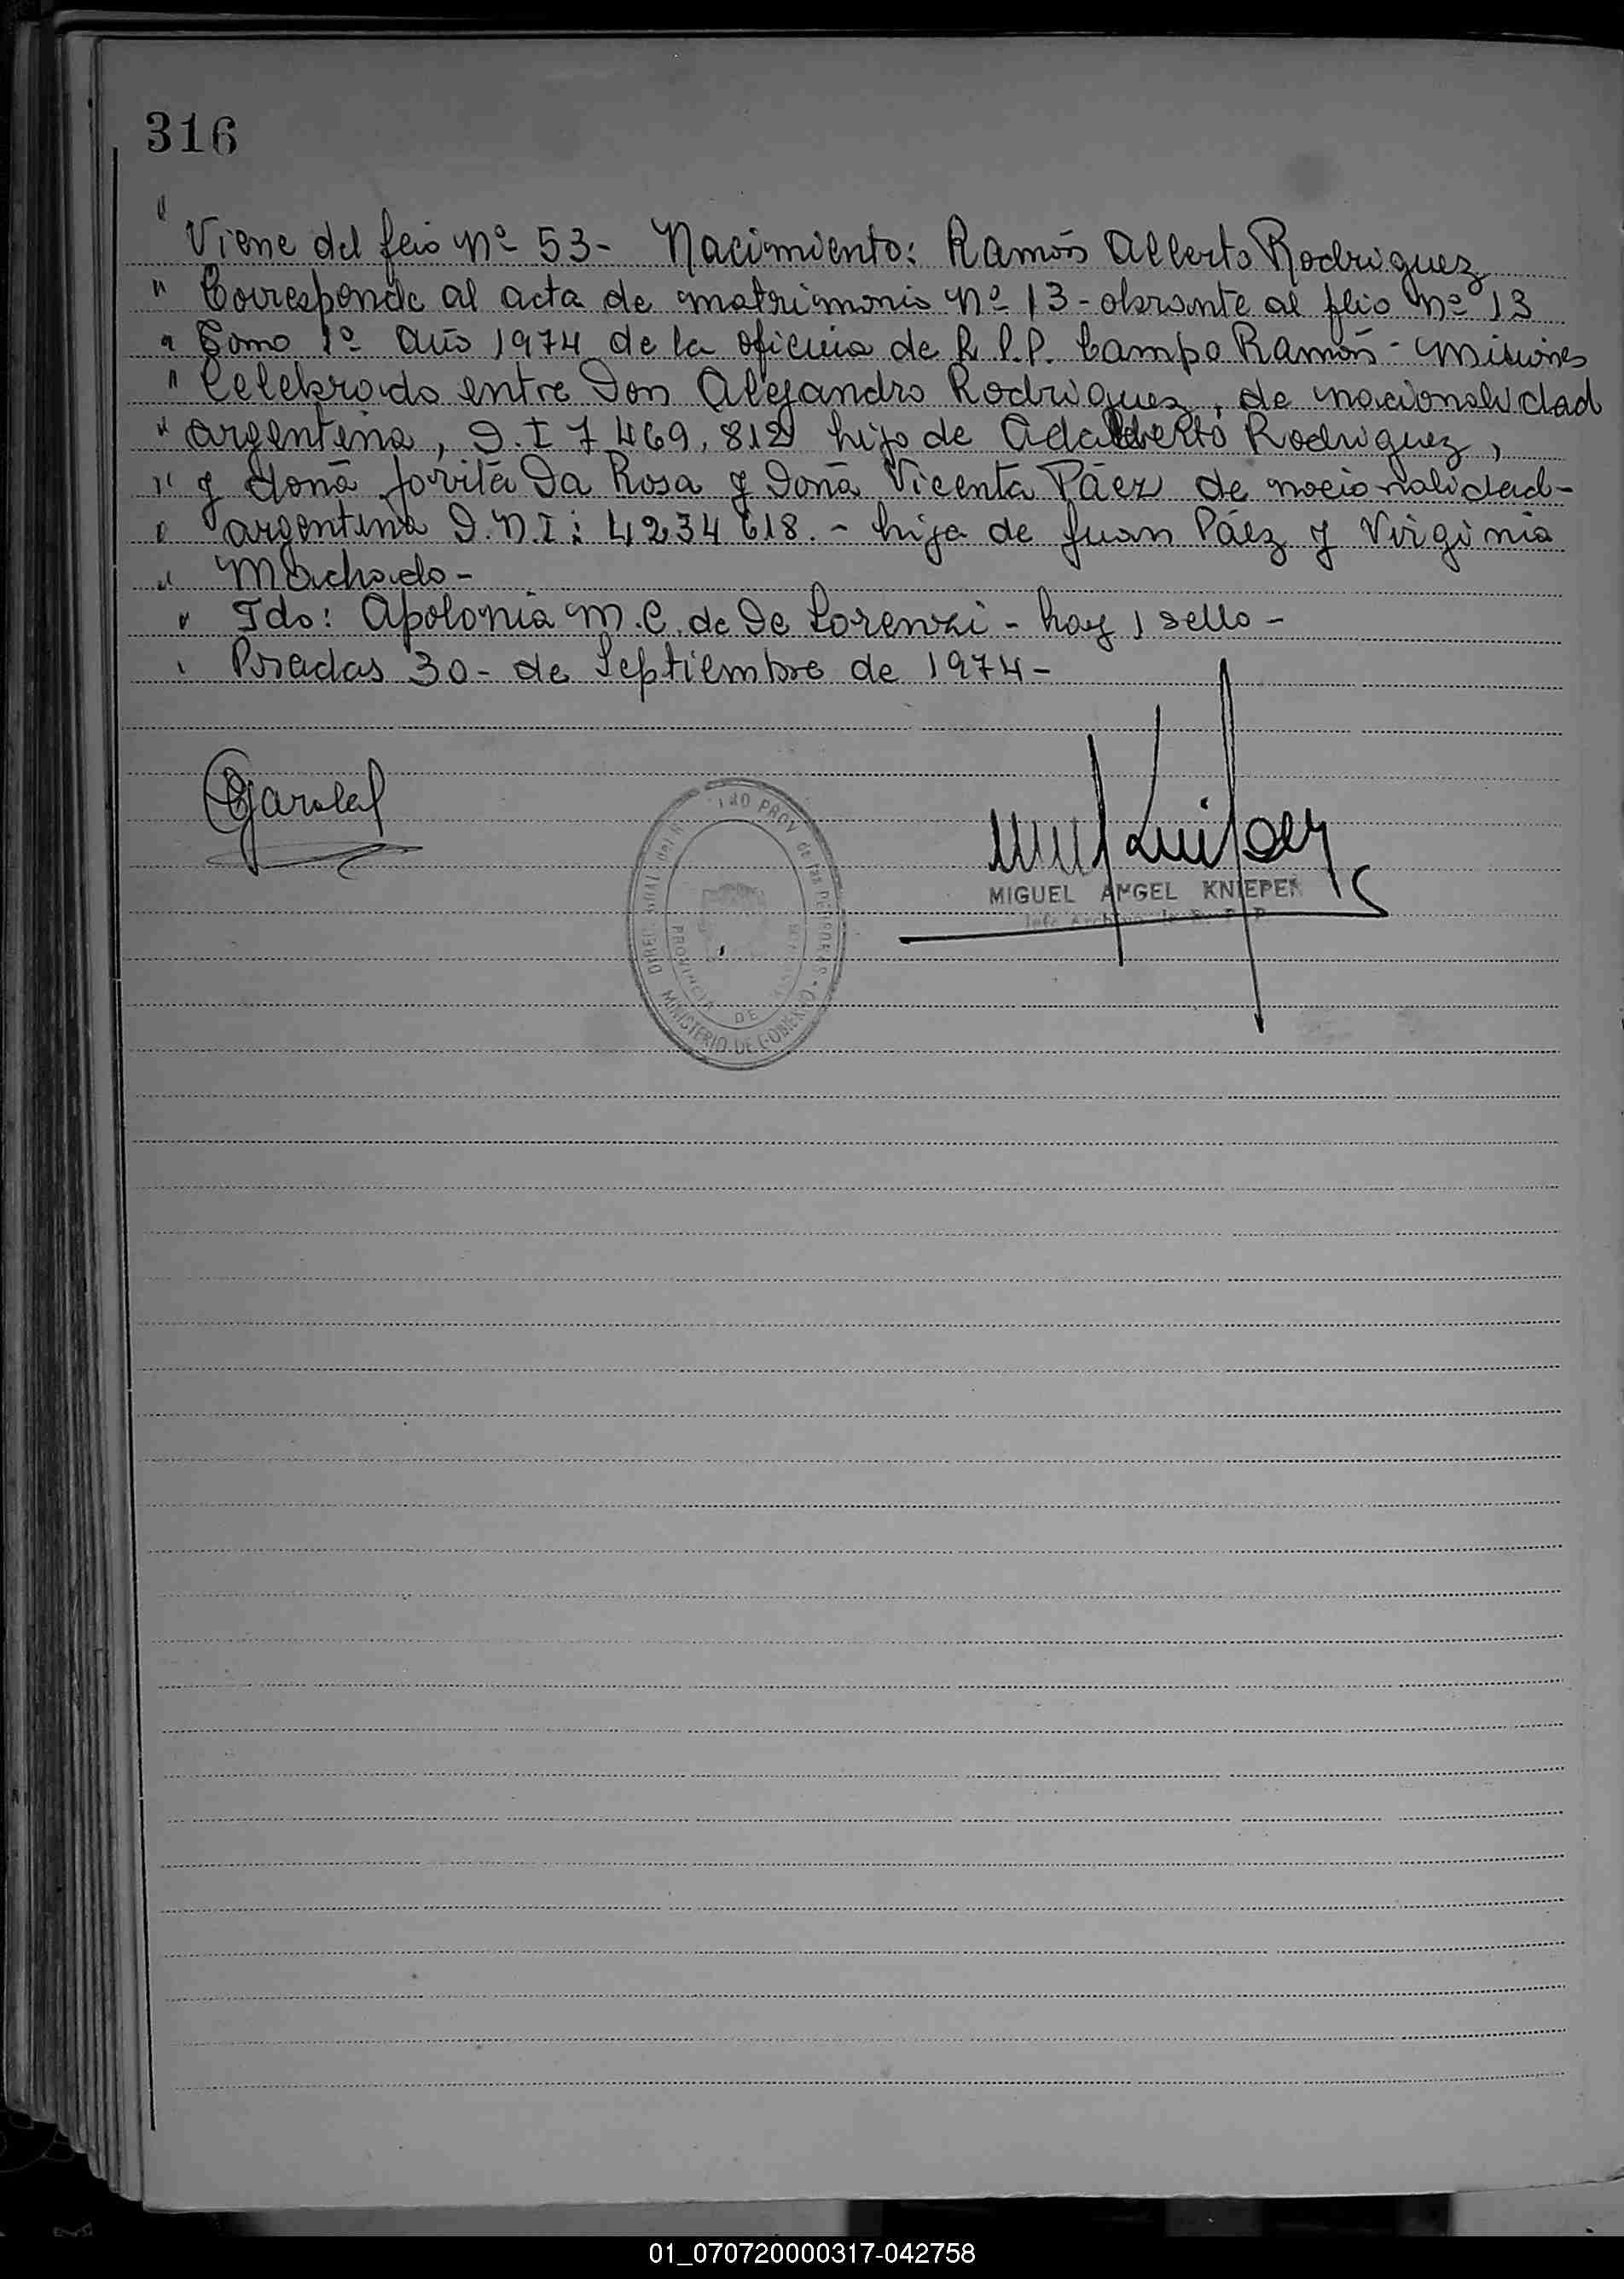 316
" Viene del feio Nº 53- Nacimiento: Ramón Alberto Rodriguez
" Corresponde al acta de matrimonio Nº 13 - obrante al flio nº 13
" Tomo 1º Año 1974 de la oficina de R.P.P. Campo Ramón - Misiones
" Celebrado entre Don Alejandro Rodriguez, de nacionalidad
" argentina, D.I 7 469.812 hijo de Adalberto Rodriguez,
" y doña Jovita Da Rosa y Doña Vicenta Páez de nacionalidad-
" argentina D.N.I: 4234618. - hija de Juan Páez y Virginia
" Machado-
" Fdo: Apolonia M.C. de De Lorenzi - hay 1 sello -
" Posadas 30- de Septiembre de 1974-
PROV de las PERSONAS - MINISTERIO DE GOBIERNO
PROVINCIA DE
MIGUEL ANGEL KNIEPER
Jefe Archivo R. P. P.
01_070720000317-042758